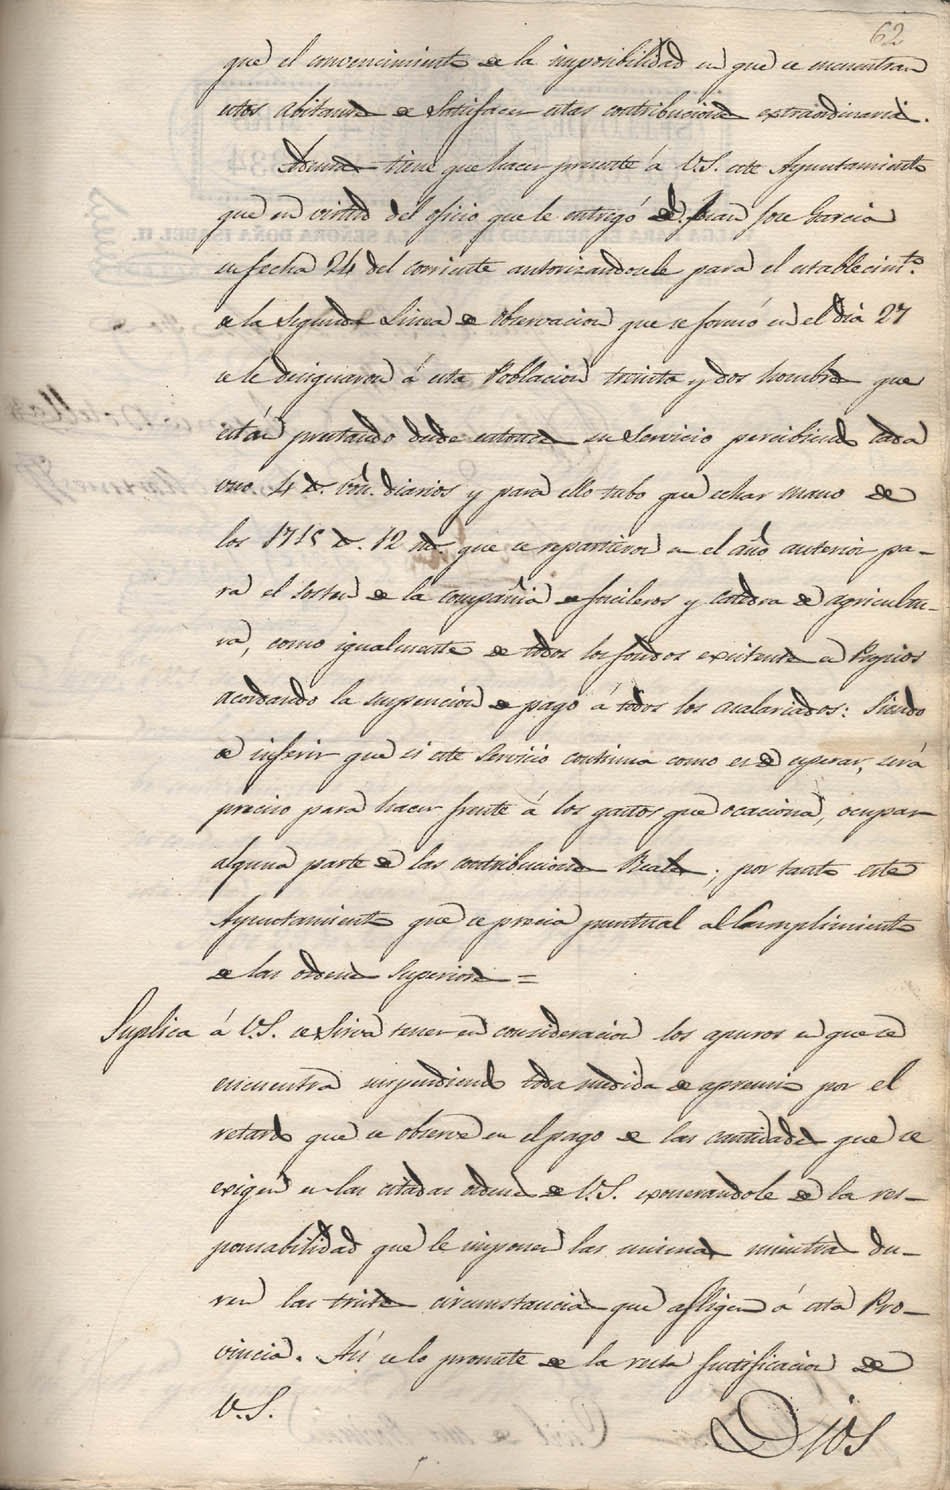 62
que el convencimiento de la imposibilidad en que se encuentran
estos abitantes de satisfacer estas contribuciones extraordinarias.
Ademas tiene que hacer presente á V.S. este Ayuntamiento
que en virtud del oficio que le entregó D. Juan Jose Garcia
su fecha 24 del corriente autorizandosele para el establecimto.
de la Segunda Linea de Observacion que se formó en el dia 27
se le designaron á esta Poblacion treinta y dos hombres que
están prestando desde entonces su servicio percibiendo cada
uno 4 rs. von. diarios y para ello tubo que echar mano de
los 1715 rs. 12 ms. que se repartieron en el año anterior pa-
ra el sosten de la compañia de fucileros y catedra de agricultu-
ra, como igualmente de todos los fondos existentes en Propios
acordando la suspencion de pago á todos los asalariados: siendo
de inferir que si este servicio continua como es de esperar, será
preciso para hacer frente á los gastos que ocaciona, ocupar
alguna parte de las contribuciones Reales; por tanto este
Ayuntamiento que se precia puntual al Cumplimiento
de las ordenes superiores =
Suplica á V.S. se sirva tener en consideracion los apuros en que se
encuentra suspendiendo toda medida de apremio por el
retardo que se observe en el pago de las cantidades que se
exigen en las citadas ordenes de V.S. exonerandole de la res-
ponsabilidad que le imponen las mismas mientras du-
ren las tristes circunstancias que afligen á esta Pro-
vincia. Así se lo promete de la recta justificacion de
V.S.
Dios